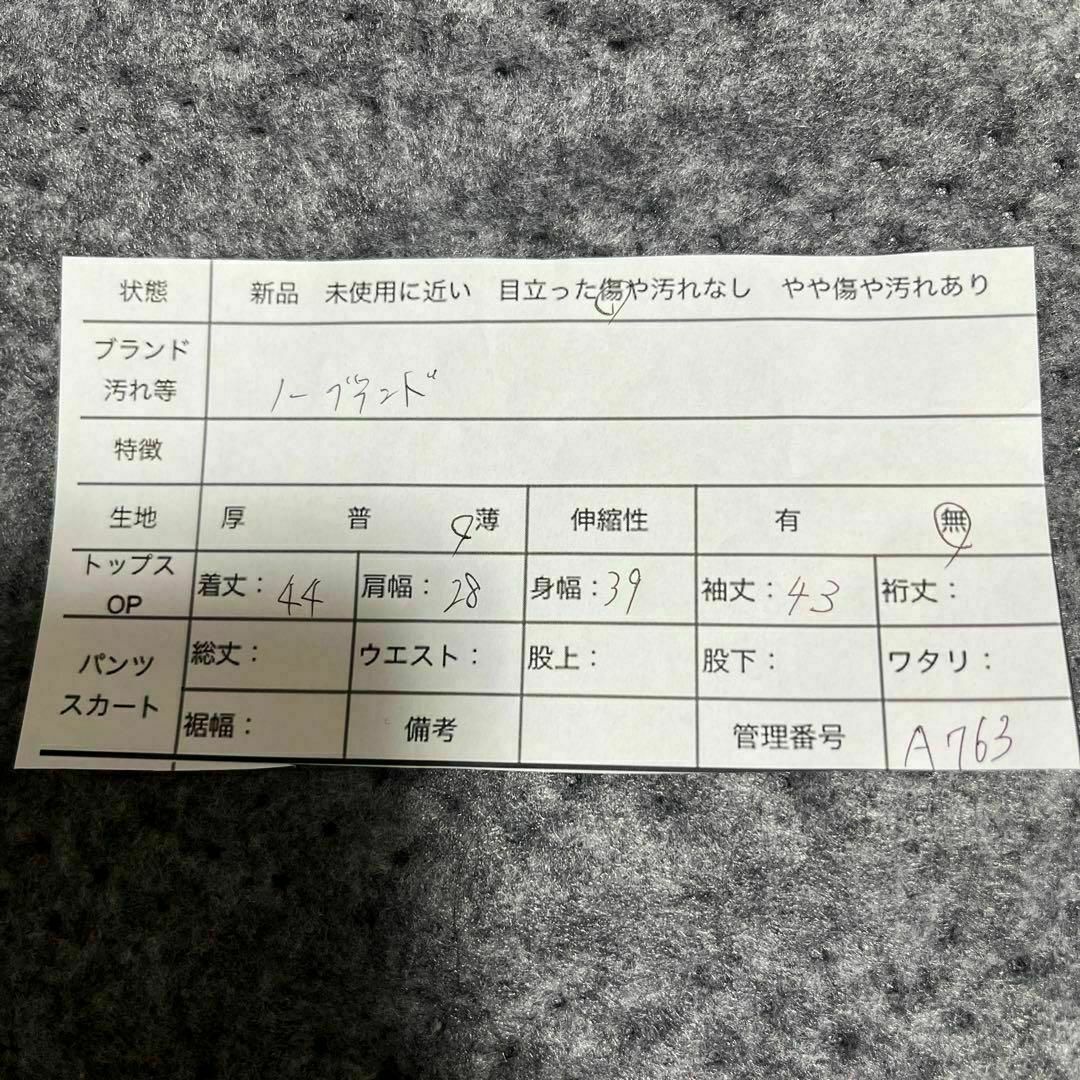 状態 新品 未使用に近い 目立った傷や汚れなし やや傷や汚れあり
ブランド
汚れ等 ノーブランド
特徴
生地 厚 普 薄 伸縮性 有 無
トップス
OP 着丈：44 肩幅：28 身幅：39 袖丈：43 裄丈：
パンツ
スカート 総丈： ウエスト： 股上： 股下： ワタリ：
裾幅： 備考 管理番号 A763